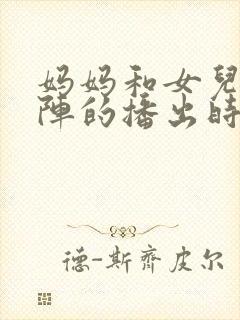 妈妈和女兒
陣的播出時
德-斯齊皮尔